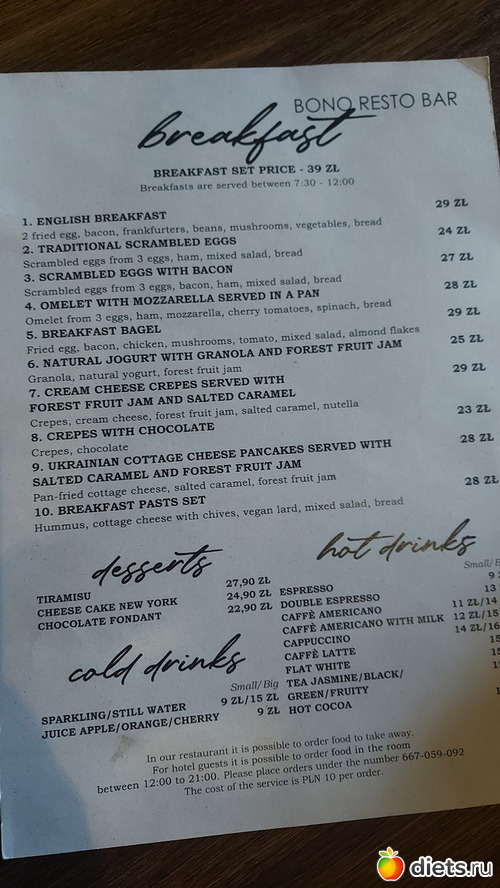 BONO RESTO BAR
breakfast
BREAKFAST SET PRICE - 39 ZŁ
Breakfasts are served between 7:30 - 12:00
1. ENGLISH BREAKFAST 29 ZŁ
2 fried egg, bacon, frankfurters, beans, mushrooms, vegetables, bread
2. TRADITIONAL SCRAMBLED EGGS 24 ZŁ
Scrambled eggs from 3 eggs, ham, mixed salad, bread
3. SCRAMBLED EGGS WITH BACON 27 ZŁ
Scrambled eggs from 3 eggs, bacon, ham, mixed salad, bread
4. OMELET WITH MOZZARELLA SERVED IN A PAN 28 ZŁ
Omelet from 3 eggs, ham, mozzarella, cherry tomatoes, spinach, bread
5. BREAKFAST BAGEL 29 ZŁ
Fried egg, bacon, chicken, mushrooms, tomato, mixed salad, almond flakes
6. NATURAL JOGURT WITH GRANOLA AND FOREST FRUIT JAM 25 ZŁ
Granola, natural yogurt, forest fruit jam
7. CREAM CHEESE CREPES SERVED WITH 29 ZŁ
FOREST FRUIT JAM AND SALTED CARAMEL
Crepes, cream cheese, forest fruit jam, salted caramel, nutella
8. CREPES WITH CHOCOLATE 23 ZŁ
Crepes, chocolate
9. UKRAINIAN COTTAGE CHEESE PANCAKES SERVED WITH 28 ZŁ
SALTED CARAMEL AND FOREST FRUIT JAM
Pan-fried cottage cheese, salted caramel, forest fruit jam
10. BREAKFAST PASTS SET 28 ZŁ
Hummus, cottage cheese with chives, vegan lard, mixed salad, bread
desserts
TIRAMISU 27,90 ZŁ
CHEESE CAKE NEW YORK 24,90 ZŁ
CHOCOLATE FONDANT 22,90 ZŁ
cold drinks
Small/Big
SPARKLING/STILL WATER 9 ZŁ/15 ZŁ
JUICE APPLE/ORANGE/CHERRY 9 ZŁ
hot drinks
Small/B
ESPRESSO 9
DOUBLE ESPRESSO 13
CAFFÈ AMERICANO 11 ZŁ/14
CAFFÈ AMERICANO WITH MILK 12 ZŁ/15
CAPPUCCINO 14 ZŁ/16
CAFFÈ LATTE 15
FLAT WHITE 15
TEA JASMINE/BLACK/
GREEN/FRUITY
HOT COCOA
In our restaurant it is possible to order food to take away.
For hotel guests it is possible to order food in the room
between 12:00 to 21:00. Please place orders under the number 667-059-092
The cost of the service is PLN 10 per order.
diets.ru